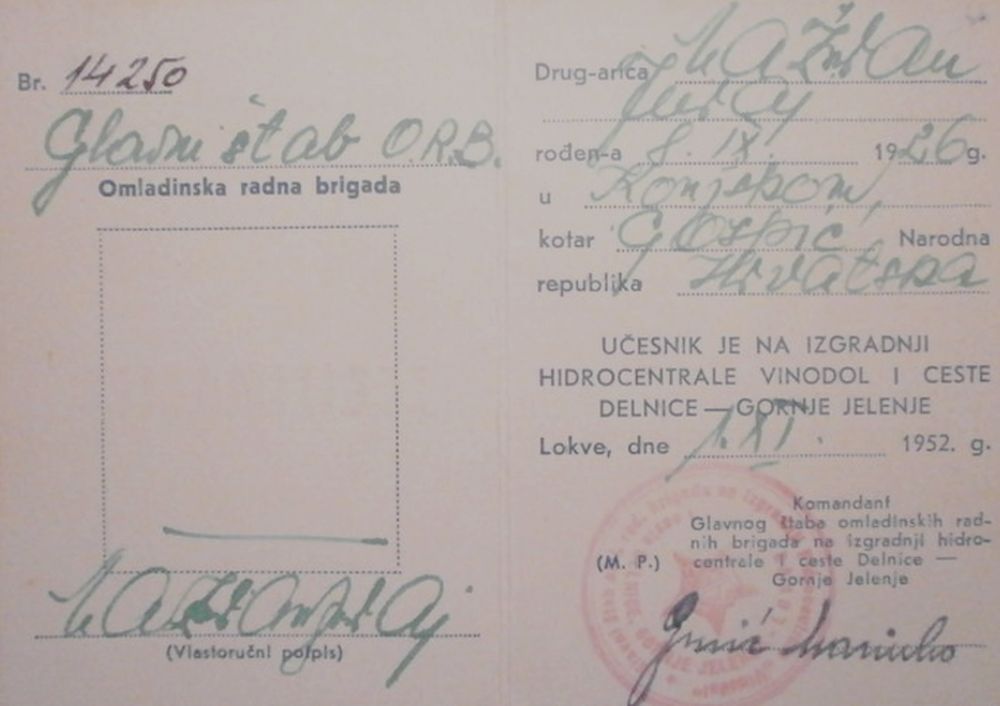 Br. 14250
Glavni štab O.R.B.
Omladinska radna brigada
(Vlastoručni potpis)
Drug-arica
Juraj
rođen-a 8. IX. 1926 g.
u
kotar Gospić Narodna
republika Hrvatska
UČESNIK JE NA IZGRADNJI
HIDROCENTRALE VINODOL I CESTE
DELNICE — GORNJE JELENJE
Lokve, dne 1. XI. 1952. g.
Komandant
Glavnog štaba omladinskih rad-
nih brigada na izgradnji hidro-
(M. P.) centrale i ceste Delnice —
Gornje Jelenje